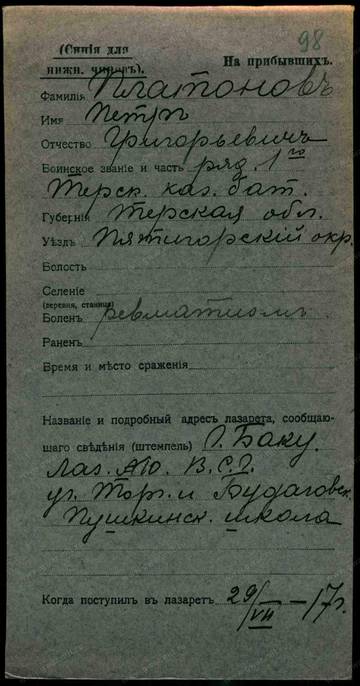 98
(Синія для
нижн. чиновъ).
На прибывшихъ.
Фамилія Платоновъ
Имя Петръ
Отчество Григорьевичъ
Воинское званіе и часть ряд. 1го
Терск. каз. бат.
Губернія Терская обл.
Уѣздъ Пятигорскій окр.
Волость
Селеніе
(деревня, станица)
Боленъ ревматизмомъ
Раненъ
Время и мѣсто сраженія
Названіе и подробный адресъ лазарета, сообщаю-
щаго свѣдѣнія (штемпель) Г. Баку.
Лаз. №10. В.С.Г.
уг. Торг. и Будаговск.
Пушкинск. школа
Когда поступилъ въ лазаретъ 29/VII—17г.